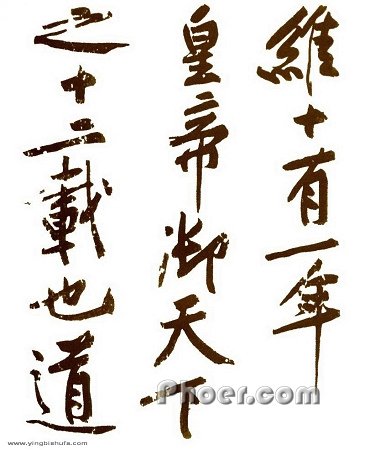 維十有一年
皇帝御天下
之十二載也道
Phoer.com
www.yingbishufa.com